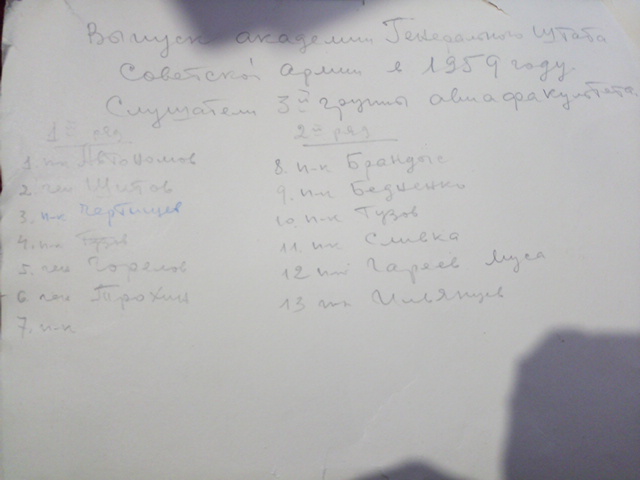 Выпуск академии Генерального Штаба
Советской Армии в 1959 году.
Слушатели 3й группы авиафакультета.
1й ряд
1. п-к Автономов
2. ген Шитов
3. п-к Чертищев
4. п-к
5. ген Горелов
6. ген Трохин
7. п-к
2й ряд
8. п-к Брандыс
9. п-к Бедненко
10. п-к Тузов
11. п-к Сливка
12 п-к Гареев Муса
13 п-к Ильянцев